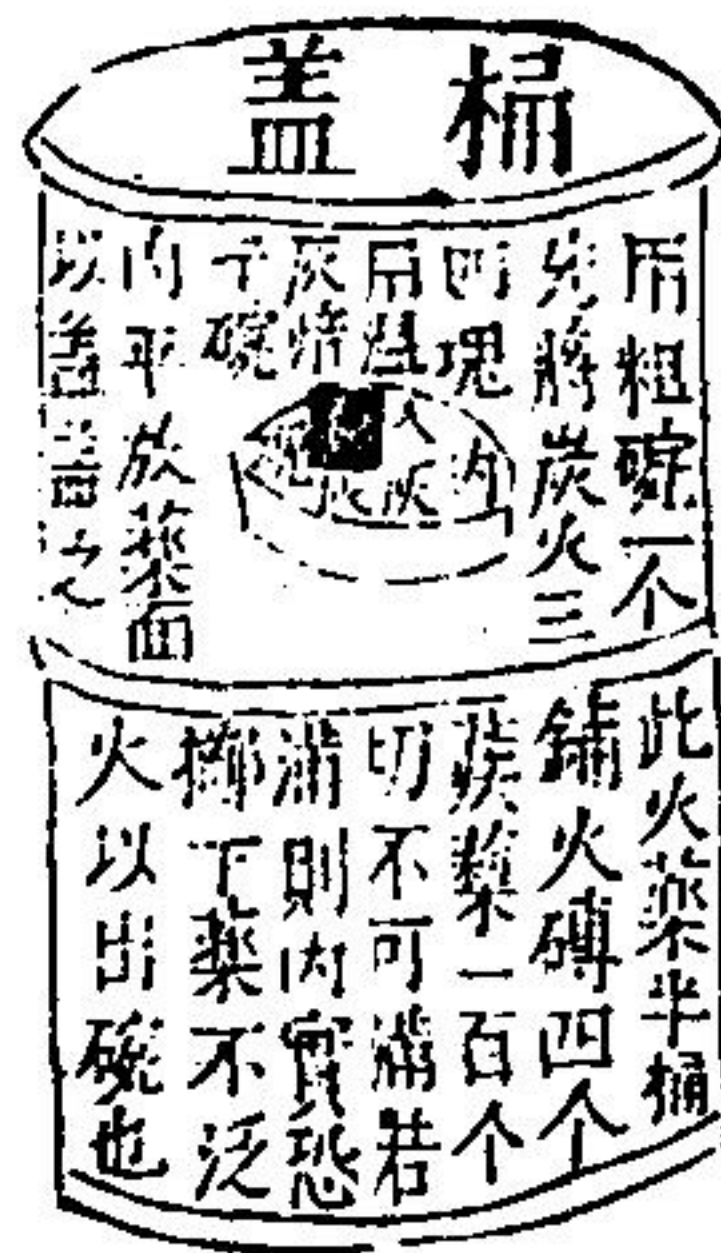 桶盖
用粗碗一个
先將炭火三
四塊
用温
灰培
于碗
内平放藥面
以盖盖之
碗内入灰火
此火藥半桶
鋪火磚四个
蒺藜一百个
切不可滿若
滿則内實恐
擲下藥不泛
火以出碗也